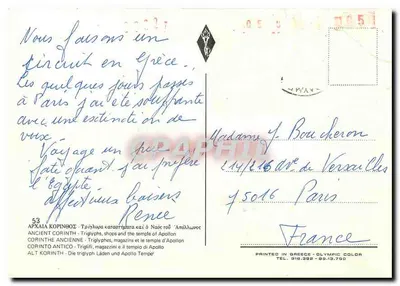 Nous faisons un
circuit en Grèce.
Les quelques jours passés
à Paris j'ai été souffrante
avec une extinction de
voix.
Voyage un peu
j'ai préféré
l'Egypte
affectueux baisers
Renée
Madame J. Boucheron
214/216 Av. de Versailles
75016 Paris
France
53
ΑΡΧΑΙΑ ΚΟΡΙΝΘΟΣ - Τρίγλυφα καταστήματα καὶ ὁ Ναὸς τοῦ Ἀπόλλωνος
ANCIENT CORINTH - Triglyphe, shops and the temple of Apollon
CORINTHE ANCIENNE - Triglyphes, magazins et le temple d'Apollon
CORINTO ANTICO - Triglifi, magazzini e il tempio di Apollo
ALT KORINTH - Die triglyph Läden und Apollo Tempel
PRINTED IN GREECE - OLYMPIC COLOR